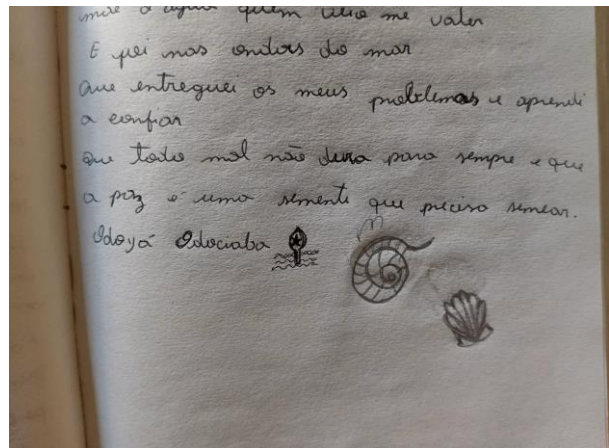 mãe d'água quem veio me valer
E foi nas ondas do mar
Que entreguei os meus problemas e aprendi
a confiar
Que todo mal não dura para sempre e que
a paz é uma semente que preciso semear.
Odoyá Odociaba